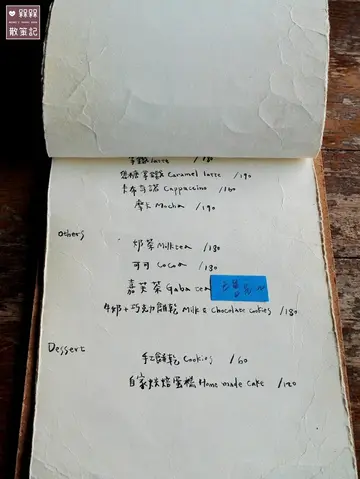 槑槑
散筆記
拿鐵 latte /180
焦糖拿鐵 Caramel latte /190
卡布奇諾 Cappuccino /160
摩卡 Mocha /190
others
奶茶 Milktea /180
可可 Cocoa /180
嘉芙茶 Gaba tea
牛奶+巧克力餅乾 Milk & chocolate cookies /180
Dessert
手工餅乾 Cookies /60
自家烘焙蛋糕 Home made cake /120